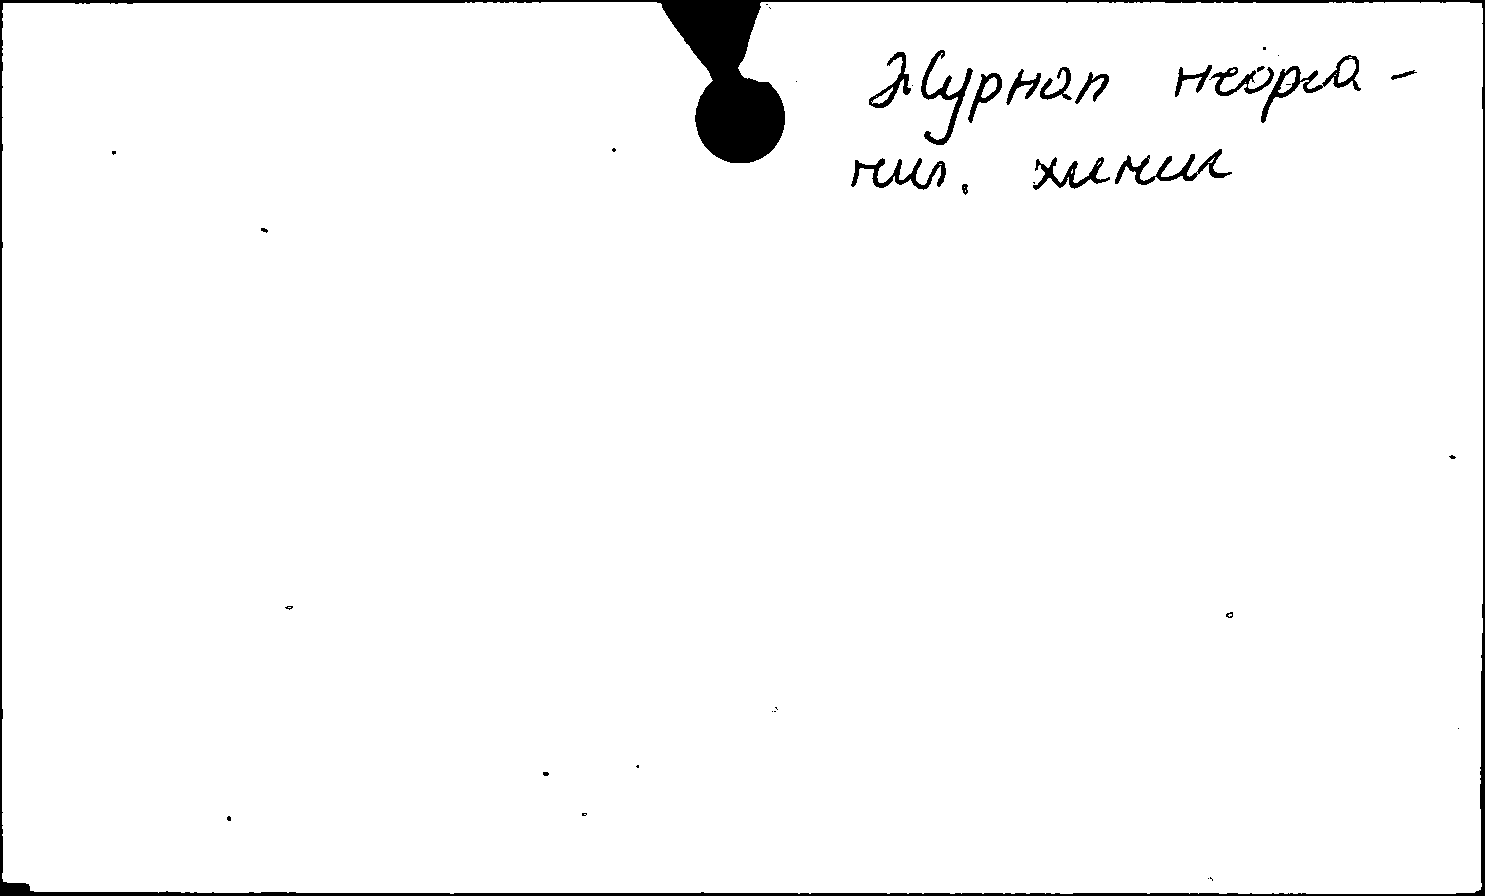 Журнал неорга-
нич. химии